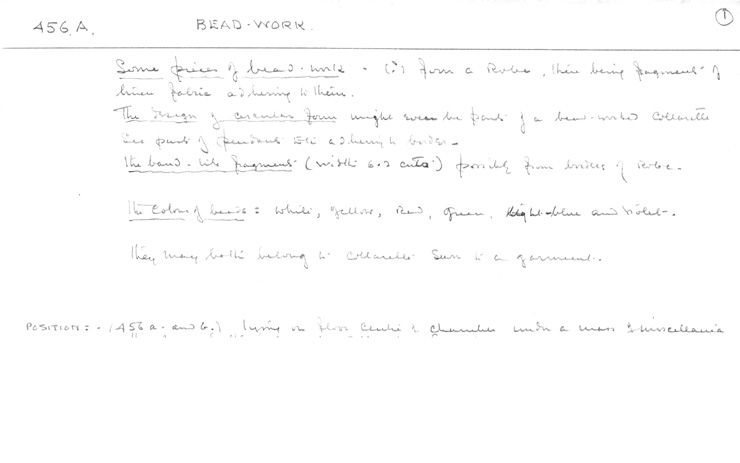 456 A. BEAD-WORK. 1
Some pieces of bead-work - (?) from a Robe, there being fragments of
linen fabric adhering to them.
The design of circular form might even be part of a bead-worked Collarette
See part of pendant etc adhering to border-
The band-like fragment (width 6.2 cntms) possibly from border of robe.
The Colour of beads: white, yellow, red, green, light-blue and violet-.
They may both belong to Collarette Sewn to a garment.
POSITION:- (456 a. and b.) lying on floor centre of chamber under a mass of miscellania